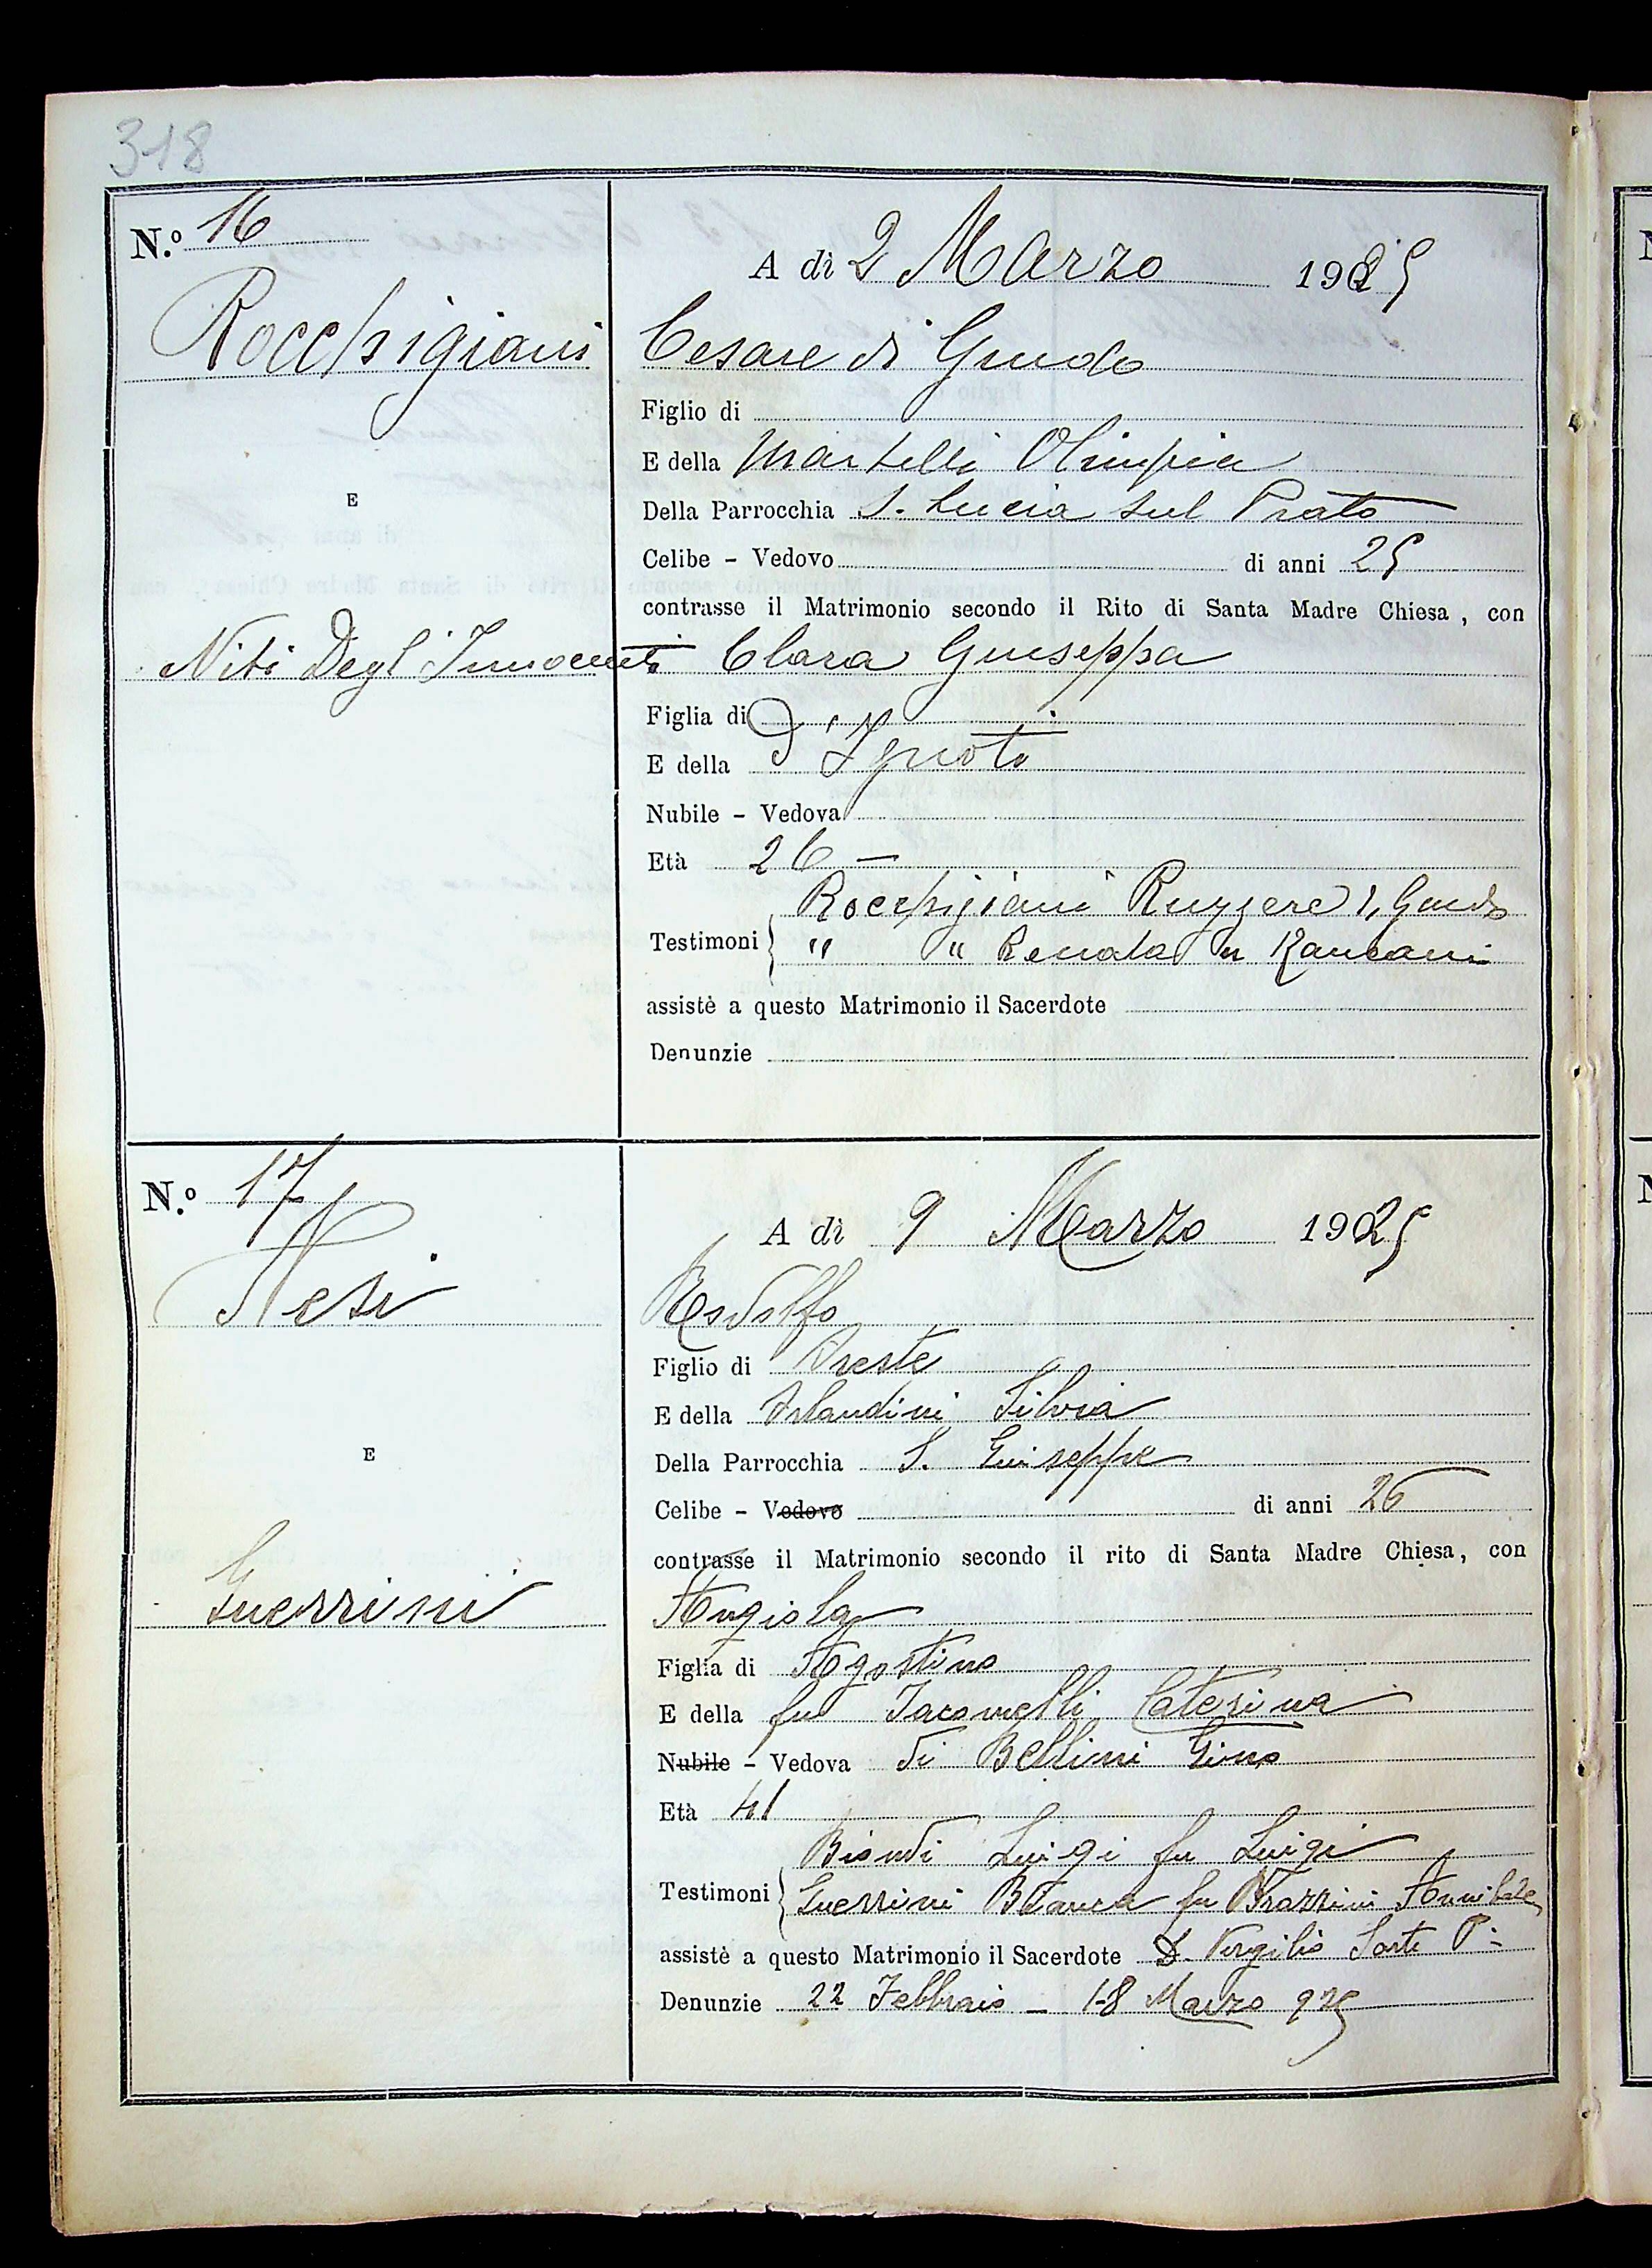 318
N.º 16
A dì 2 Marzo 1925
Rocchigiani
Cesare di Guido
Figlio di
E della Martelli Olimpia
E
Della Parrocchia S. Lucia sul Prato
Celibe - Vedovo di anni 25
contrasse il Matrimonio secondo il Rito di Santa Madre Chiesa, con
Niti Degl'Innocenti Clara Giuseppa
Figlia di
E della D'Ignoti
Nubile - Vedova
Età 26 —
Rocchigiani Ruggero di Guido
Testimoni " " Renata
assistè a questo Matrimonio il Sacerdote
Denunzie
N.º 17
A dì 9 Marzo 1925
Nesi
Rodolfo
Figlio di Oreste
E della Orlandini Silvia
E
Della Parrocchia S. Giuseppe
Celibe - Vedovo di anni 26
contrasse il Matrimonio secondo il rito di Santa Madre Chiesa, con
Guerrini
Angiola
Figlia di Agostino
E della fu Jacomelli Caterina
Nubile - Vedova di Bellini Gino
Età 41
Biondi Luigi fu Luigi
Testimoni Guerrini Bianca fu Annibale
assistè a questo Matrimonio il Sacerdote D. Virgilio Sarti P.
Denunzie 22 Febbraio - 1-8 Marzo 925